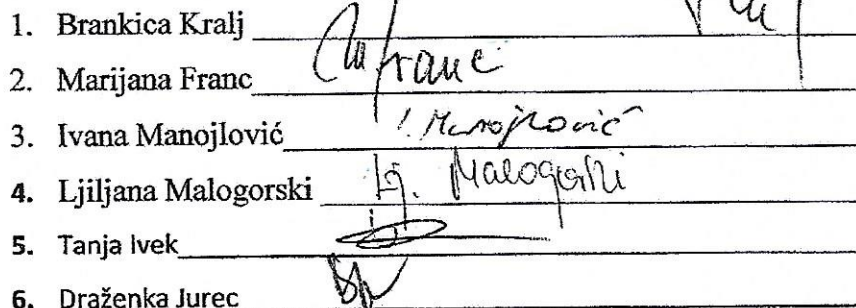 1. Brankica Kralj
2. Marijana Franc Mfranc
3. Ivana Manojlović I. Manojlović
4. Ljiljana Malogorski Lj. Malogorski
5. Tanja Ivek
6. Draženka Jurec